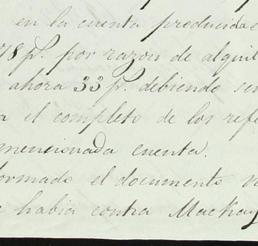 en la cuenta producida
78 p.s por razon de alquil
ahora 33 p.s debiendo ser
a el completo de los refe
mencionada cuenta.
formado el documento
habia contra Mackay